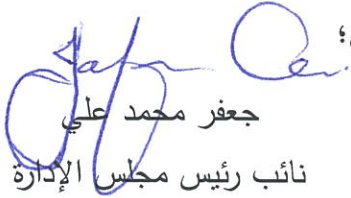 ؛
جعفر محمد علي
نائب رئيس مجلس الإدارة